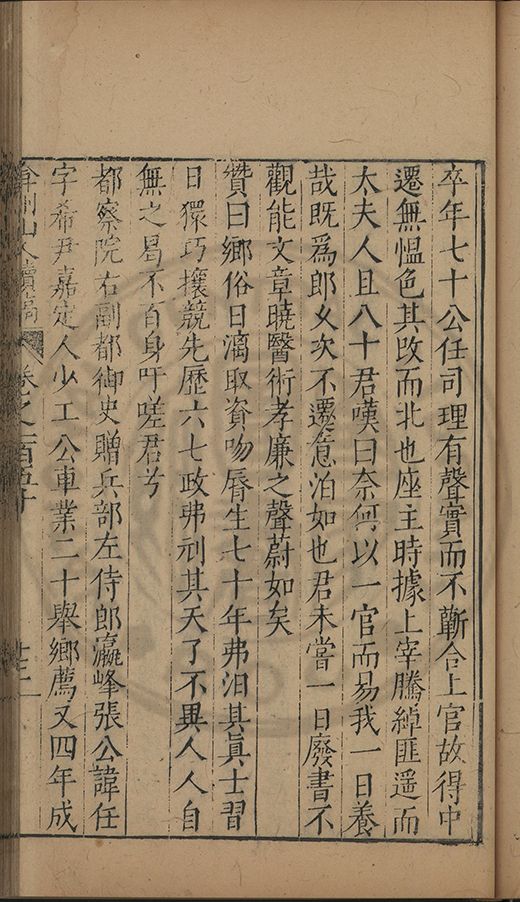 卒年七十公任司理有聲實而不蘄合上官故得中
遷無慍色其改而北也座主時據上宰騰綽匪遥而
太夫人且八十君嘆曰奈何以一官而易我一日養
哉既爲郎久次不遷意泊如也君未嘗一日廢書不
觀能文章曉醫術孝廉之聲蔚如矣
贊曰鄉俗日漓取資吻脣生七十年弗汨其眞士習
日獧巧攘競先歷六七政弗刓其天了不異人人自
無之曷不百身吁嗟君兮
都察院右副都御史贈兵部左侍郎瀛峰張公諱任
字希尹嘉定人少工公車業二十舉鄉薦又四年成
弇州山人續稿 卷之一百五十